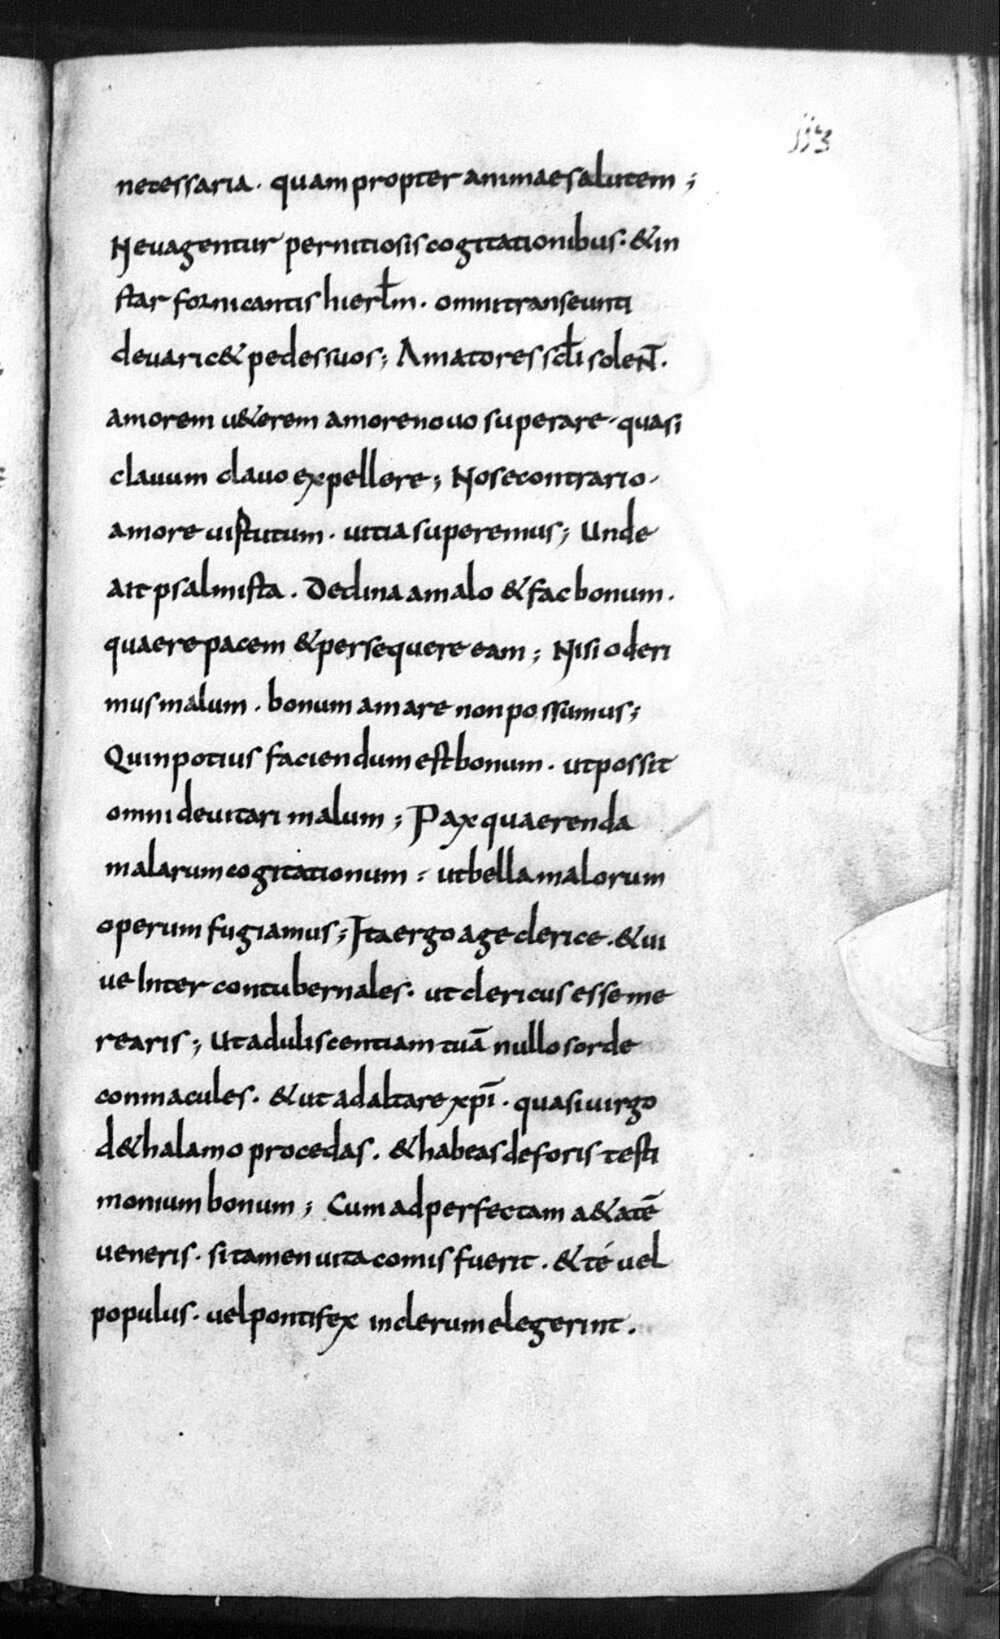 113
necessaria. quam propter animae salutem;
Ne vagentur pernitiosis cogitationibus. & in
star fornicantis hierłm. omni transeunti
devaric& pedes suos; Amatores scłi solent̄.
amorem u&erem amore nouo superare. quasi
clauum clauo expellere; Nos e contrario.
amore uirtutum. uitia superemus; Unde
ait psalmista. Declina a malo & fac bonum.
quaere pacem & persequere eam; Nisi oderi
mus malum. bonum amare non possumus;
Quin potius faciendum est bonum. ut possit
omni deuitari malum; Pax quaerenda
malarum cogitationum; ut bella malorum
operum fugiamus; Ita ergo age clerice. & ui
ue inter contubernales. ut clericus esse me
rearis; Ut aduliscentiam tuā nullo sorde
conmacules. & ut ad altare xpī. quasi uirgo
d& halamo procedas. & habeas deforis testi
monium bonum; Cum ad perfectam a&atē
ueneris. si tamen uita comis fuerit. & té uel
populus. uel pontifex in clerum elegerint.